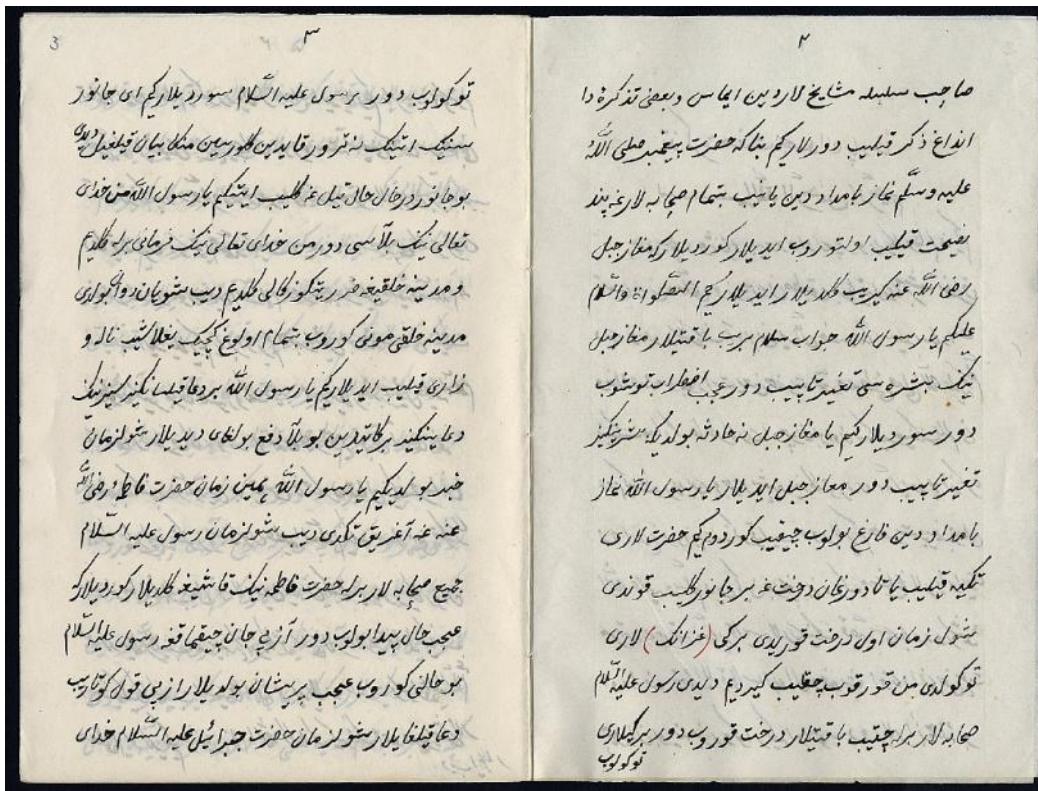 ٢
صاحب سلسله مشایخ لاردین ایماس و بعضی تذکره دا
انداغ ذکر قیلیب دورلار کم بناکه حضرت پیغمبر صلی اللّٰه
علیه و سلّم نماز بامداد دین یانیب بتمام صحابه لارغه پند
نصیحت قیلیب اولتوروب ایدیلار کوردیلارکه معاز جبل
رضی اللّٰه عنه کیریب کلدیلار ایدیلار کم الصّلواة والسّلام
علیکم یا رسول اللّٰه جواب سلام بریب باقتیلار معاز جبل
نینک بشره سی تغیر تاپیب دور عجب اضطراب توشوب
دور سوردیلار کیم یا معاز جبل نه حادثه بولدیکه بشرینکیز
تغیر تاپیب دور معاز جبل ایدیلار یا رسول اللّٰه نماز
بامداد دین فارغ بولوب چیقیب کوردوم کیم حضرت لاری
تکیه قیلیب یاتادورغان درخت غه بر جانور کلیب قوندی
شول زمان اول درخت قوریدی برکی (غزانک) لاری
توکولدی من قورقوب چقلیب کیردیم دیدی رسول علیه السّلام
صحابه لار برله چیقیب باقتیلار درخت قوروب دور برکیلاری
توکولوب
٣
3
توکولوب دور رسول علیه السّلام سوردیلار کم ای جانور
سنینک اتینک نه ترور قایدین کلورسین منکا بیان قیلغیل دیدی
بو جانور درحال حال تیل غه کلیب ایتیکیم یا رسول اللّٰه من خدای
تعالی نینک بلاّسی دورمن خدای تعالی نینک فرمانی برله کلدیم
و مدینه خلقیغه ضرر یتکوزکالی کلدیم دیب شویان روان بولدی
مدینه خلقی مونی کوروب بتمام اولوغ کیچیک یغلاشیب ناله و
زاری قیلیب ایدیلار کیم یا رسول اللّٰه بر دعا قیلسانکیز سیزنینک
دعاینکیز برکاتیدین بو بلاّ دفع بولغای دیدیلار شولزمان
خبر بولدیکیم یا رسول اللّٰه همین زمان حضرت فاطمه رضی اللّٰه
عنه غه آغریق تکدی دیب شولزمان رسول علیه السّلام
جمیع صحابه لار برله حضرت فاطمه نینک قاشیغه کلدیلار کوردیلارکه
عجب حال پیدا بولوب دور آز بی جان چیقماقغه رسول علیه السّلام
بو حالنی کوروب عجب پریشان بولدیلار ازبی قول کوتاریب
دعا قیلغایلار شولزمان حضرت جبرائیل علیه السّلام خدای